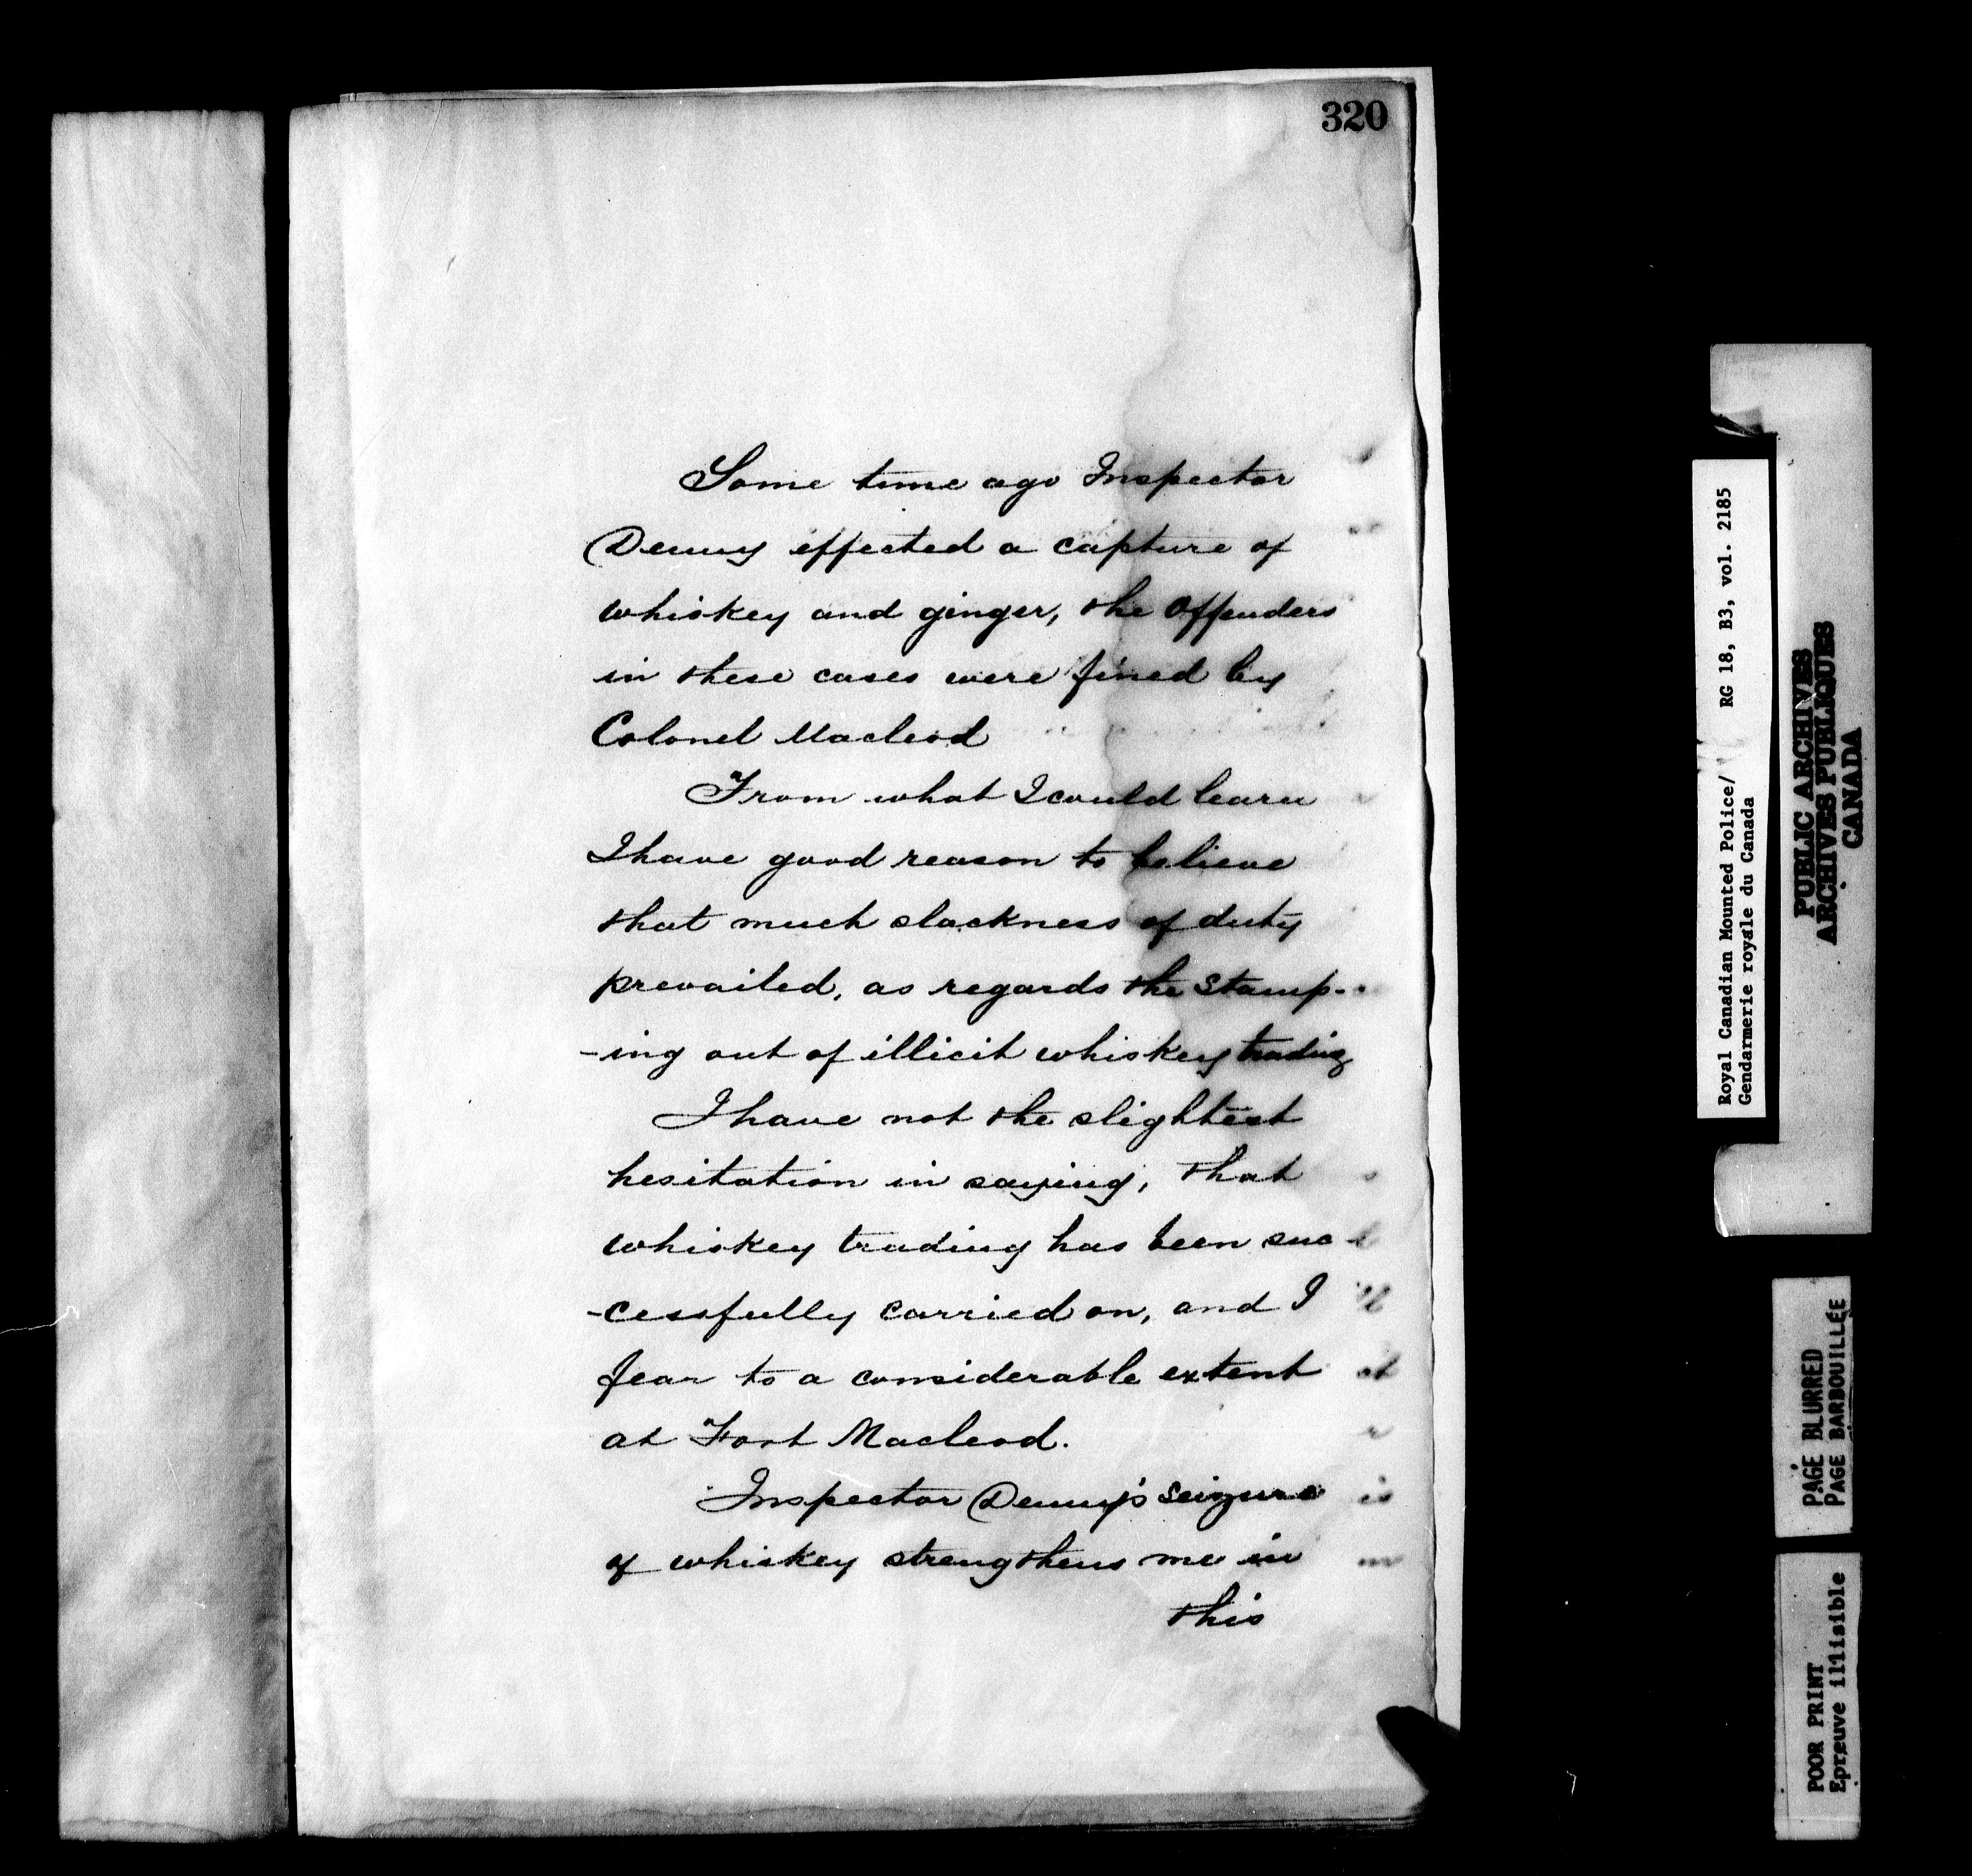 320
Some time ago Inspector
Denny effected a capture of
whiskey and ginger, the offenders
in these cases were fined by
Colonel Macleod
From what I could learn
I have good reason to believe
that much slackness of duty
prevailed, as regards the stamp-
-ing out of illicit whiskey trading
I have not the slightest
hesitation in saying, that
whiskey trading has been suc
-cessfully carried on, and I
fear to a considerable extent
at Fort Macleod.
Inspector Denny's seizure
of whiskey strengthens me in
this
Royal Canadian Mounted Police/ RG 18, B3, vol. 2185
Gendarmerie royale du Canada
PUBLIC ARCHIVES
ARCHIVES PUBLIQUES
CANADA
PAGE BLURRED
PAGE BARBOUILLÉE
POOR PRINT
Epreuve illisible